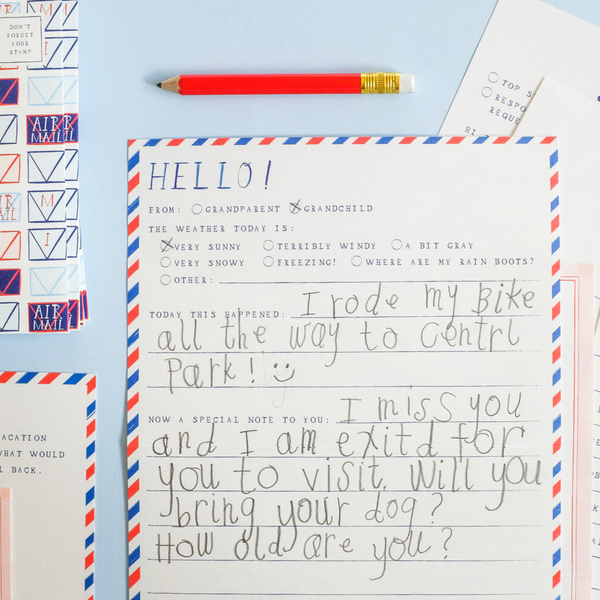 DON'T
FORGET
YOUR
STAMP
AIR
MAIL
AIR
MAIL
TOP
HELLO!
FROM: GRANDPARENT GRANDCHILD
THE WEATHER TODAY IS:
VERY SUNNY TERRIBLY WINDY A BIT GRAY
VERY SNOWY FREEZING! WHERE ARE MY RAIN BOOTS?
OTHER:
TODAY THIS HAPPENED: I rode my Bike
all the way to Centrl
Park! :)
NOW A SPECIAL NOTE TO YOU: I miss you
and I am exitd for
you to visit. Will you
bring your dog?
How old are you?
WHAT WOULD
BACK.